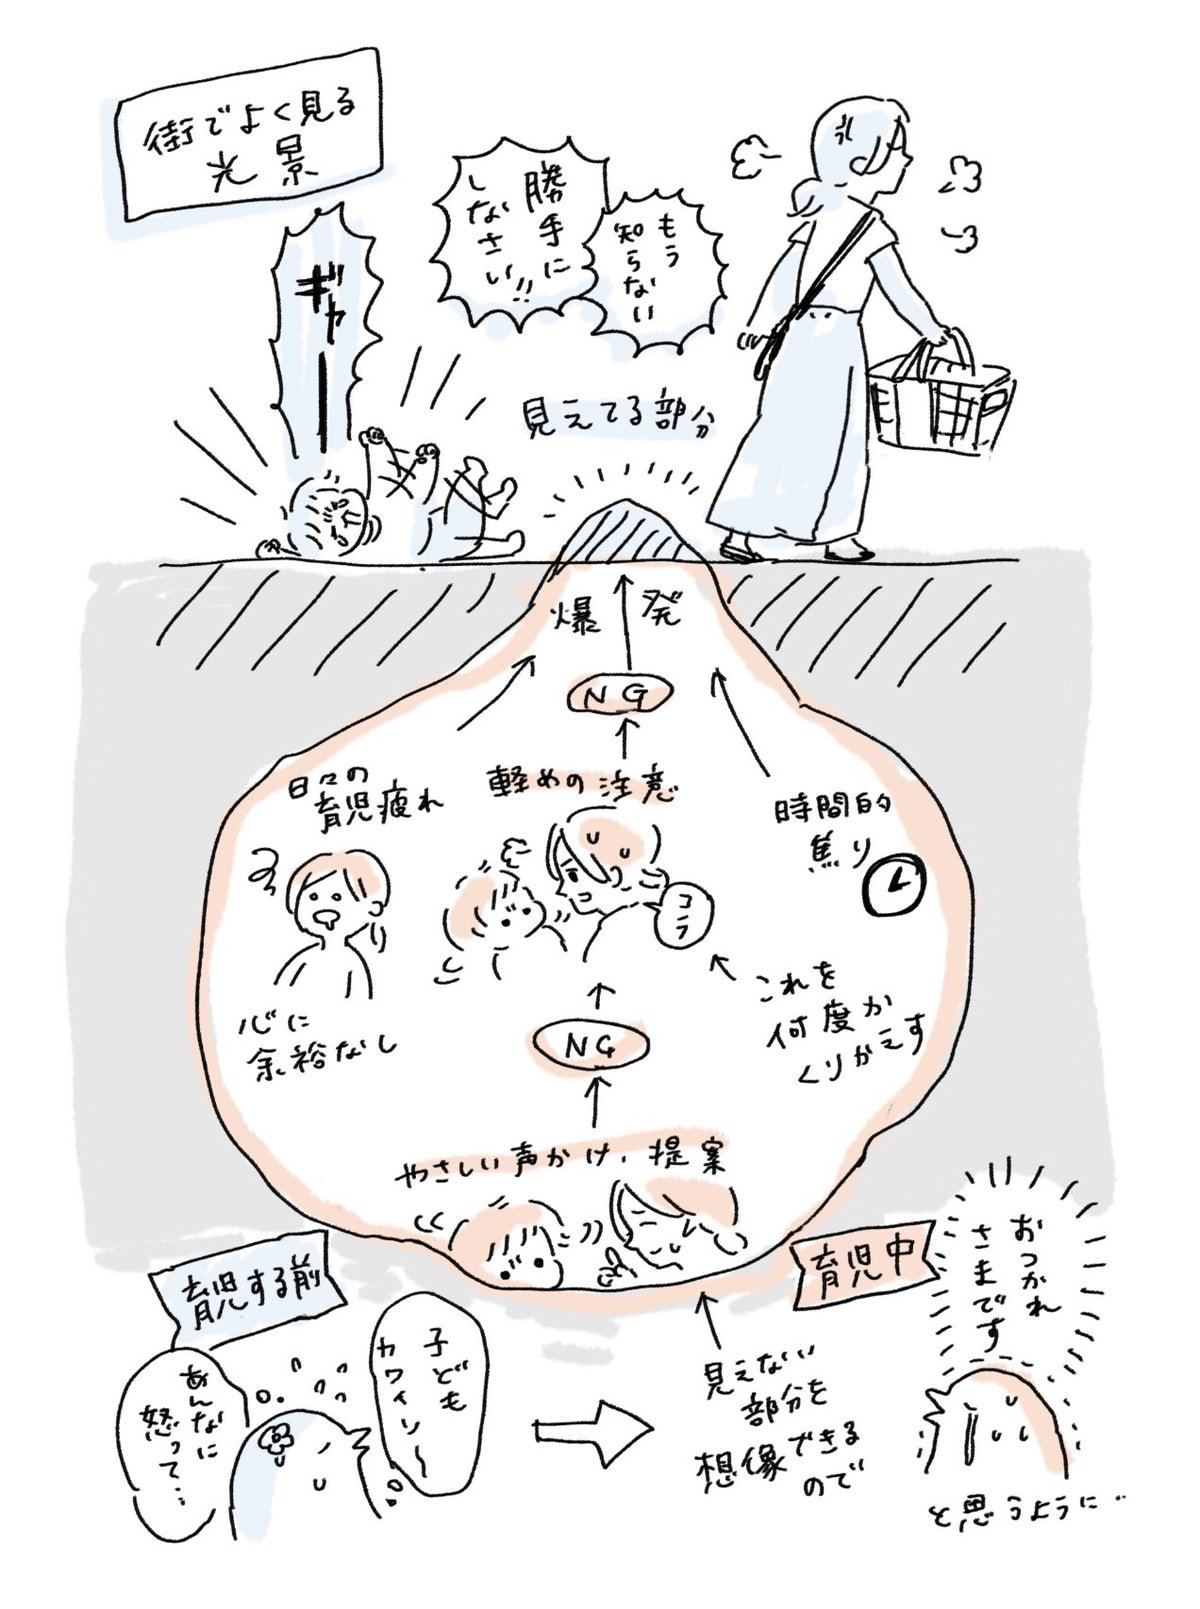 街でよく見る
光景
ギャー
勝手に
しなさい!!
もう
知らない
見えてる部分
爆発
NG
日々の
育児疲れ
軽めの注意
時間的
焦り
コラ
心に
余裕なし
これを
何度か
くりかえす
NG
やさしい声かけ、提案
育児する前
あんなに
怒って…
子ども
カワイソー
育児中
見えない
部分を
想像できる
ので
おつかれ
さまです
と思うように…